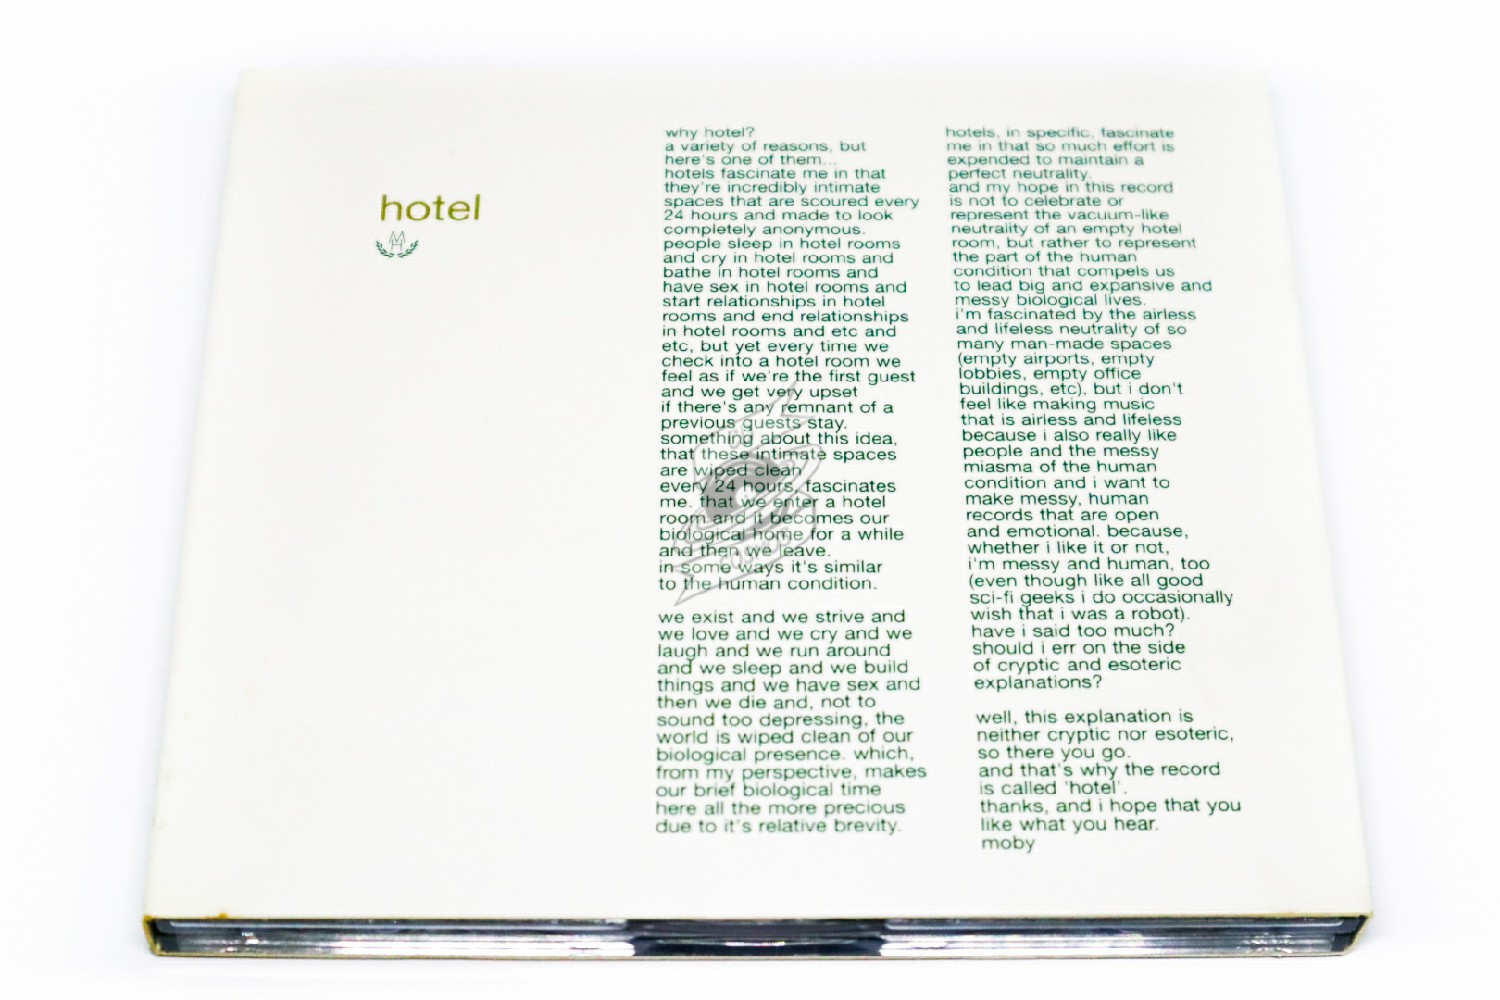 hotel
MH
why hotel?
a variety of reasons, but
here's one of them...
hotels fascinate me in that
they're incredibly intimate
spaces that are scoured every
24 hours and made to look
completely anonymous.
people sleep in hotel rooms
and cry in hotel rooms and
bathe in hotel rooms and
have sex in hotel rooms and
start relationships in hotel
rooms and end relationships
in hotel rooms and etc and
etc, but yet every time we
check into a hotel room we
feel as if we're the first guest
and we get very upset
if there's any remnant of a
previous guests stay.
something about this idea,
that these intimate spaces
are wiped clean
every 24 hours, fascinates
me. that we enter a hotel
room and it becomes our
biological home for a while
and then we leave.
in some ways it's similar
to the human condition.
we exist and we strive and
we love and we cry and we
laugh and we run around
and we sleep and we build
things and we have sex and
then we die and, not to
sound too depressing, the
world is wiped clean of our
biological presence. which,
from my perspective, makes
our brief biological time
here all the more precious
due to it's relative brevity.
hotels, in specific, fascinate
me in that so much effort is
expended to maintain a
perfect neutrality.
and my hope in this record
is not to celebrate or
represent the vacuum-like
neutrality of an empty hotel
room, but rather to represent
the part of the human
condition that compels us
to lead big and expansive and
messy biological lives.
i'm fascinated by the airless
and lifeless neutrality of so
many man-made spaces
(empty airports, empty
lobbies, empty office
buildings, etc), but i don't
feel like making music
that is airless and lifeless
because i also really like
people and the messy
miasma of the human
condition and i want to
make messy, human
records that are open
and emotional. because,
whether i like it or not,
i'm messy and human, too
(even though like all good
sci-fi geeks i do occasionally
wish that i was a robot).
have i said too much?
should i err on the side
of cryptic and esoteric
explanations?
well, this explanation is
neither cryptic nor esoteric,
so there you go.
and that's why the record
is called 'hotel'.
thanks, and i hope that you
like what you hear.
moby